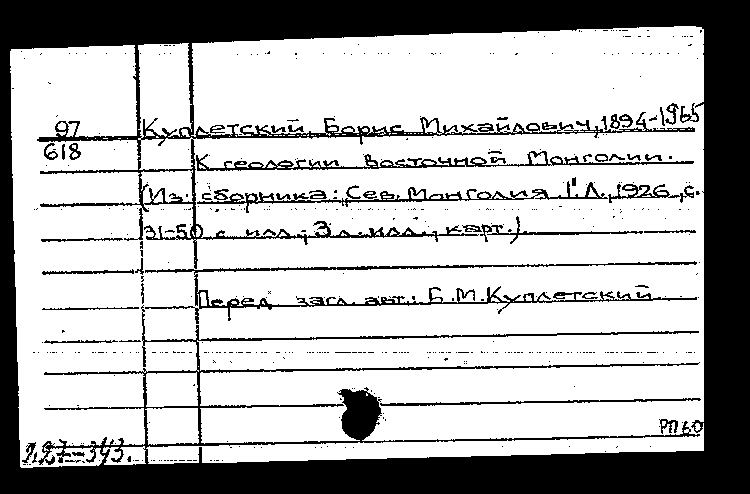 97 Куплетский, Борис Михайлович, 1894-1965
618
К геологии Восточной Монголии.
(Из сборника: „Сев. Монголия I". Л., 1926, с.
31-50 с илл.; 3 л. илл., карт.)
Перед загл. авт.: Б.М. Куплетский
РП 60
п.27-343.